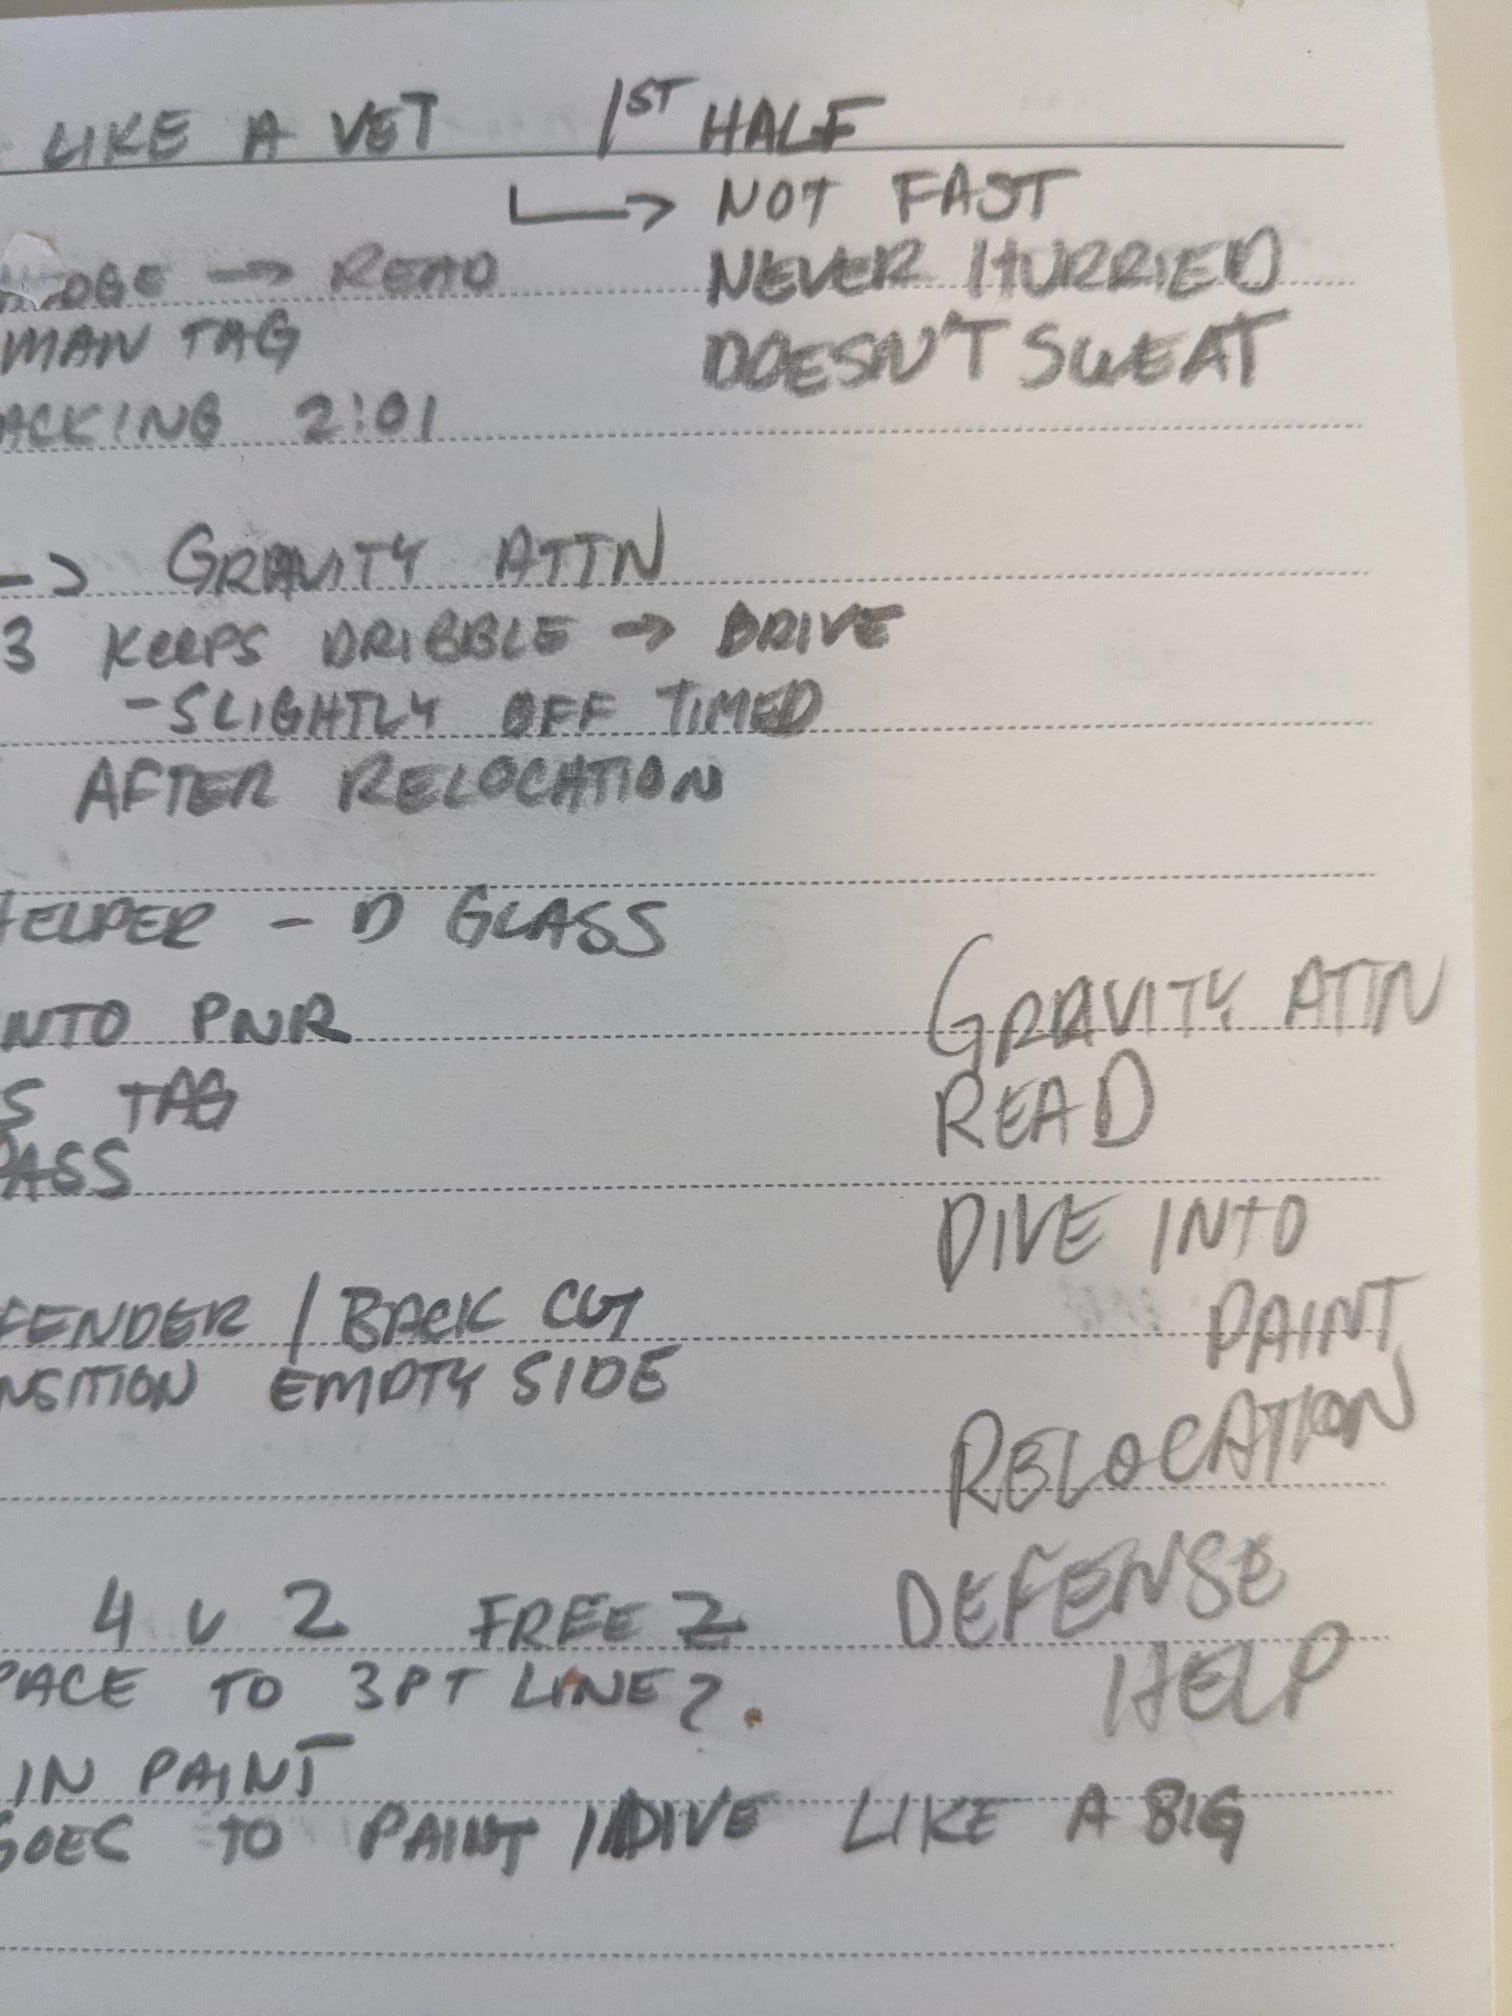 LIKE A VET 1ST HALF
↳ NOT FAST
→ READ NEVER HURRIED
MAN TAG DOESN'T SWEAT
ACKING 2:01
-> GRAVITY ATTN
3 KEEPS DRIBBLE → DRIVE
- SLIGHTLY OFF TIMED
AFTER RELOCATION
HELPER - D GLASS
INTO PNR GRAVITY ATTN
S TAG READ
PASS
DIVE INTO
FENDER / BACK CUT PAINT
NSITION EMPTY SIDE
RELOCATION
4 v 2 FREE 2 DEFENSE
PACE TO 3PT LINE? HELP
IN PAINT
GOES TO PAINT / DIVE LIKE A BIG